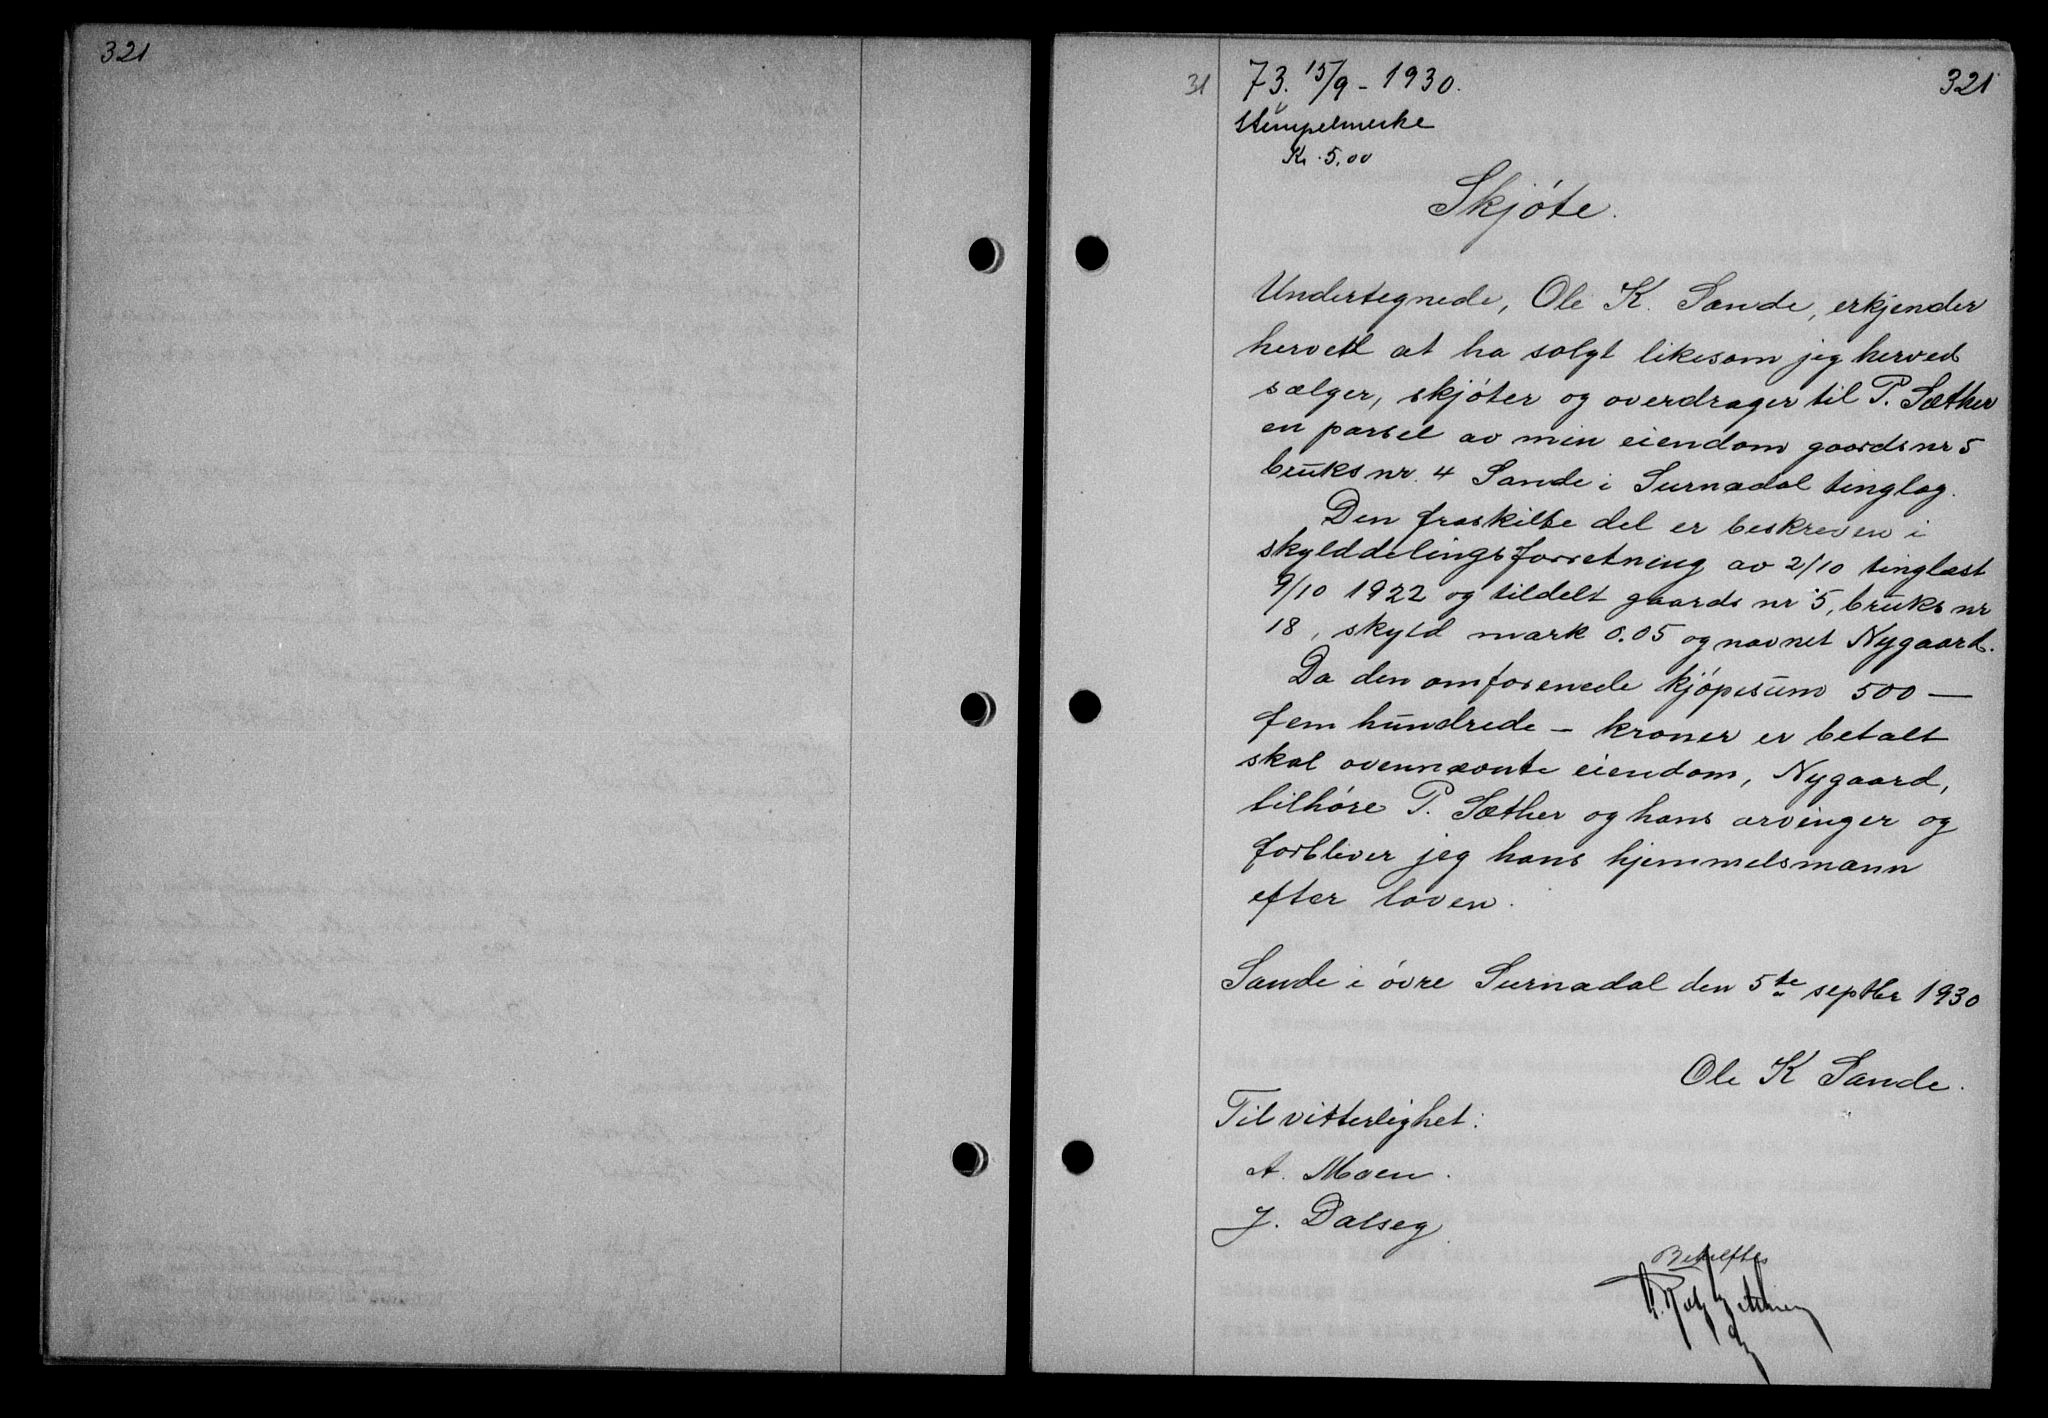 321
31
73. 15/9 - 1930.
321
Stempelmerke
Kr. 5.00
Skjöte.
Undertegnede, Ole K. Sande, erkjender
herved at ha solgt likesom jeg herved
sælger, skjöter og overdrager til P. Sæther
en parsel av min eiendom gaards nr 5
bruks nr. 4 Sande i Surnadal tinglag.
Den fraskilte del er beskreven i
skylddelingsforretning av 2/10 tinglæst
9/10 1922 og tildelt gaards nr 5, bruks nr
18, skyld mark 0.05 og navnet Nygaard.
Da den omforenede kjöpesum 500 —
fem hundrede — kroner er betalt
skal ovennævnte eiendom, Nygaard,
tilhöre P. Sæther og hans arvinger og
forbliver jeg hans hjemmelsmann
efter loven.
Sande i övre Surnadal den 5te septbr 1930
Ole K Sande.
Til vitterlighet:
A. Moen.
J. Dalseg.
Bekreftes